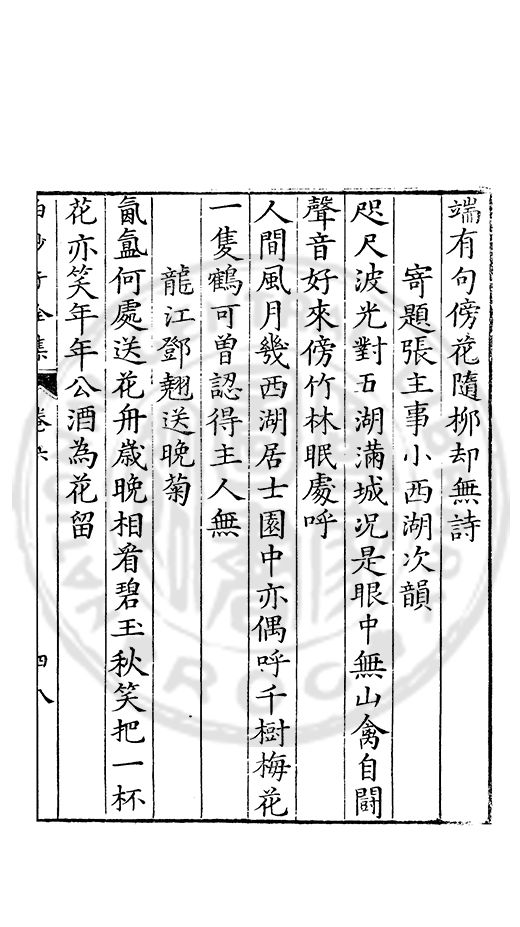 端有句傍花隨柳却無詩
寄題張主事小西湖次韻
咫尺波光對五湖滿城况是眼中無山禽自鬭
聲音好來傍竹林眠處呼
人間風月幾西湖居士園中亦偶呼千樹梅花
一隻鶴可曾認得主人無
龍江鄧翹送晚菊
氤氲何處送花舟歲晚相看碧玉秋笑把一杯
花亦笑年年公酒為花留
白沙子全集
卷六
四八